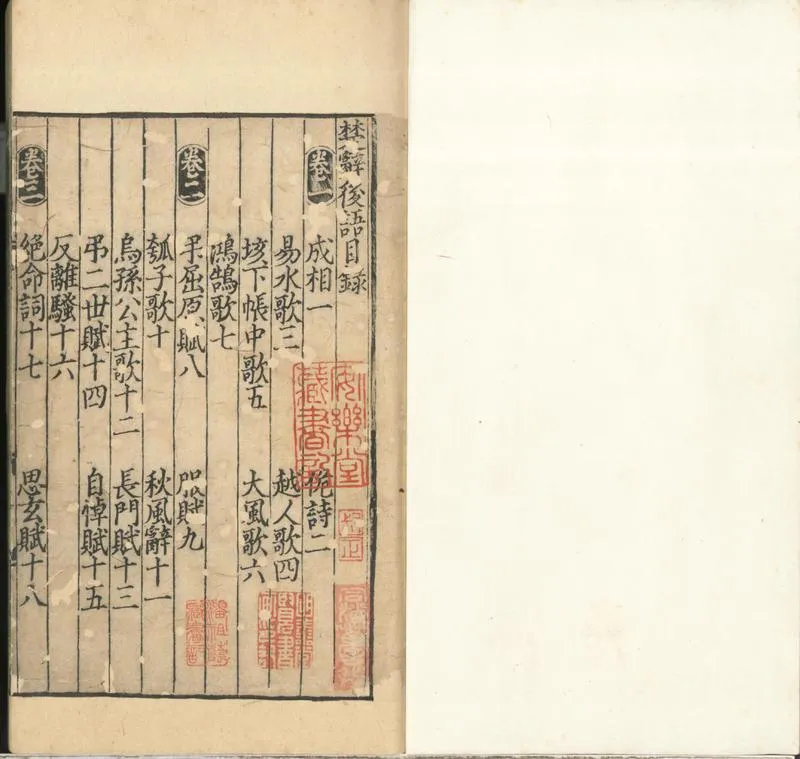 楚辭後語目録
卷一
成相一 佹詩二
易水歌三 越人歌四
垓下帳中歌五 大風歌六
鴻鵠歌七
卷二
弔屈原賦八 服賦九
瓠子歌十 秋風辭十一
烏孫公主歌十二 長門賦十三
弔二世賦十四 自悼賦十五
反離騷十六
卷三
絕命詞十七 思玄賦十八
安樂堂
藏書記